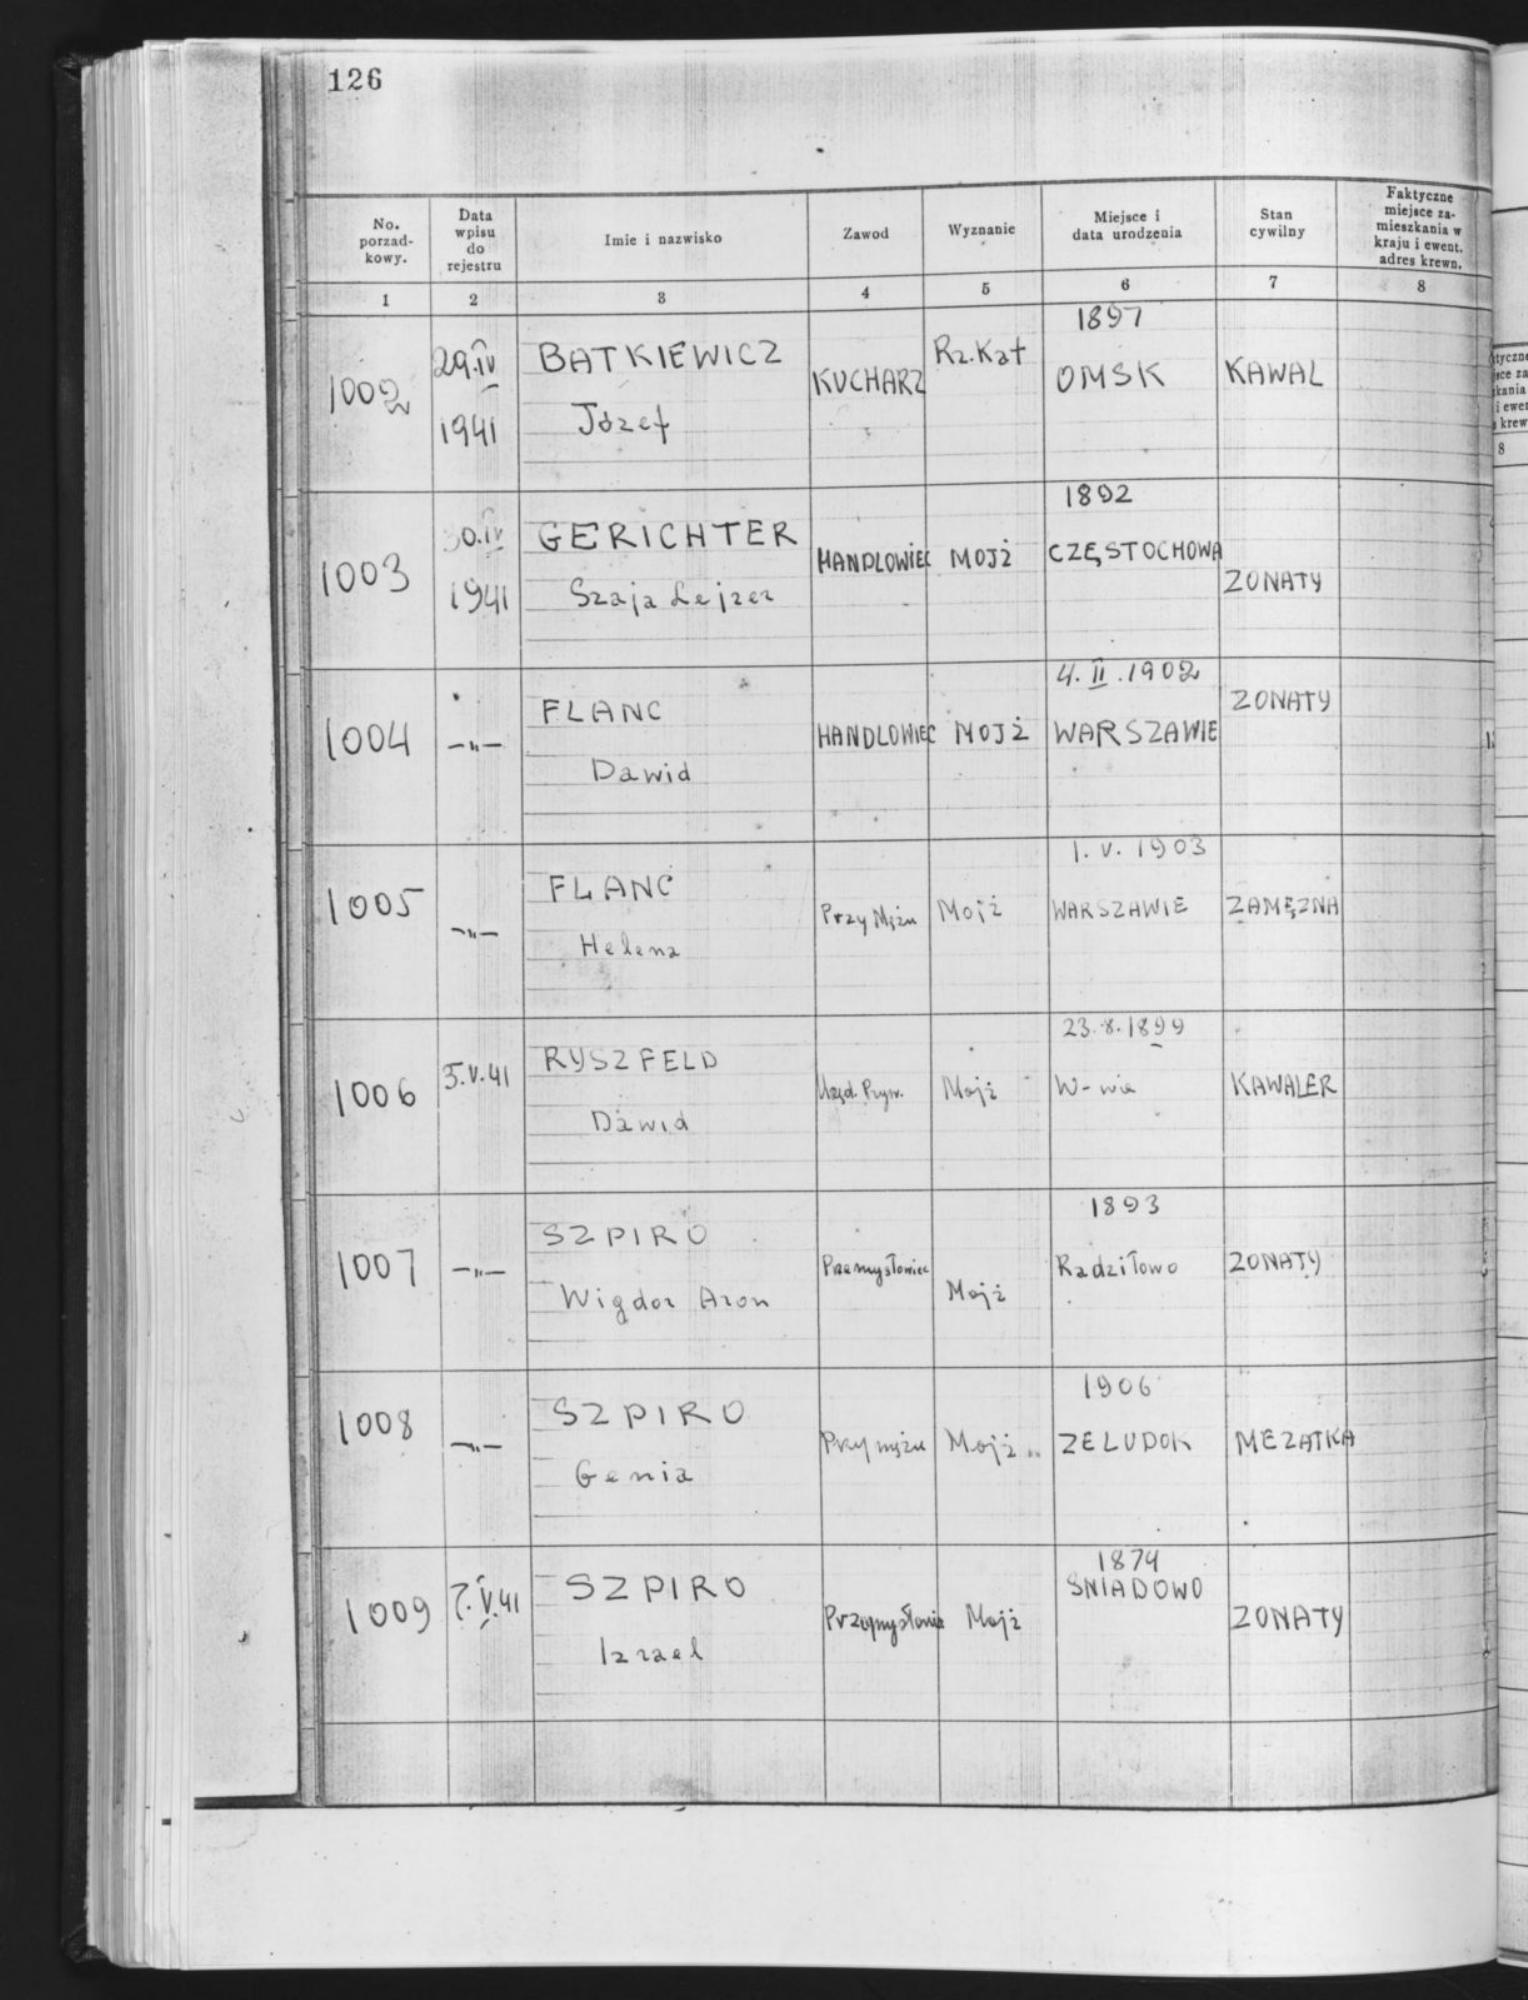 126
No. porzad- kowy.
Data wpisu do rejestru
Imie i nazwisko
Zawod
Wyznanie
Miejsce i data urodzenia
Stan cywilny
Faktyczne miejsce za- mieszkania w kraju i ewent. adres krewn.
1 2 3 4 5 6 7 8
1002 29.IV 1941 BATKIEWICZ Józef KUCHARZ Rz.Kat 1897 OMSK KAWAL
1003 30.IV 1941 GERICHTER Szaja Lejzer HANDLOWIEC MOJŻ 1892 CZĘSTOCHOWA ZONATY
1004 —"— FLANC Dawid HANDLOWIEC MOJŻ 4.II.1902 WARSZAWIE ZONATY
1005 —"— FLANC Helena Przy Mężu Mojż 1.V.1903 WARSZAWIE ZAMĘZNA
1006 5.V.41 RYSZFELD Dawid Urzęd. Pryw. Mojż 23.8.1899 W-wie KAWALER
1007 —"— SZPIRO Wigdor Aron Przemysłowiec Mojż 1893 Radziłowo ZONATY
1008 —"— SZPIRO Genia Przy mężu Mojż 1906 ZELUDOK MEZATKA
1009 7.V.41 SZPIRO Izrael Przemysłowie Mojż 1874 SNIADOWO ZONATY
8